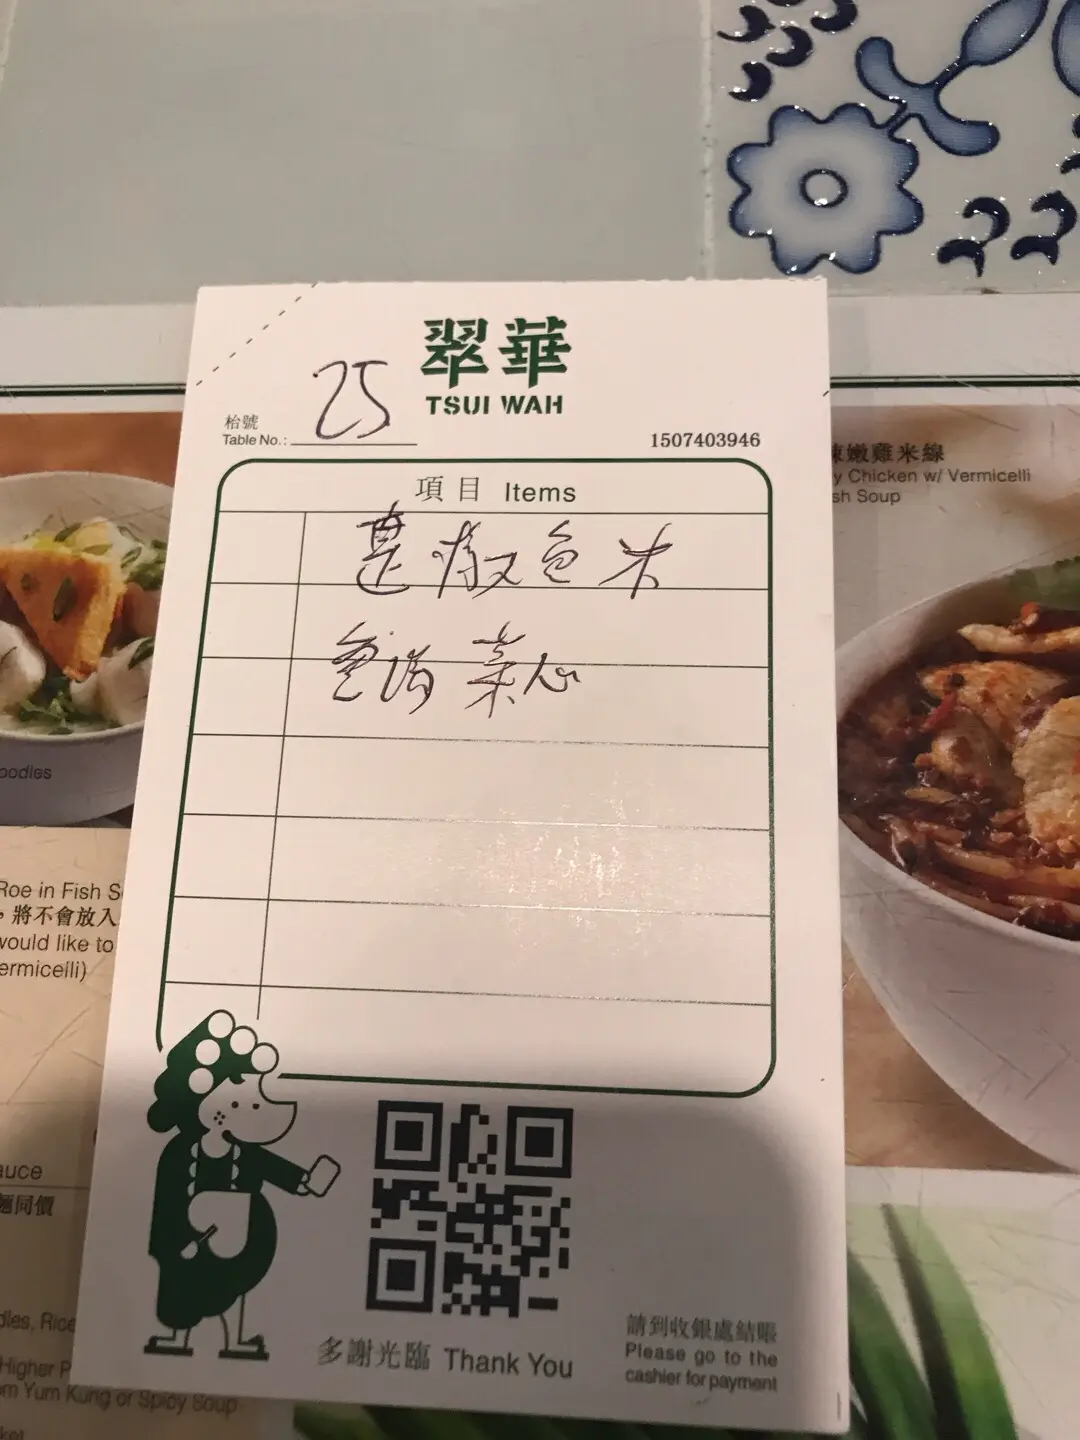 翠華
TSUI WAH
枱號
Table No.: 25
1507403946
項目 Items
菜心
多謝光臨 Thank You
請到收銀處結賬
Please go to the
cashier for payment
嫩雞米線
y Chicken w/ Vermicelli
sh Soup
oodles
Roe in Fish S
，將不會放入
would like to
ermicelli)
auce
麵同價
dles, Rice
Higher P
om Yum Kung or Spicy Soup